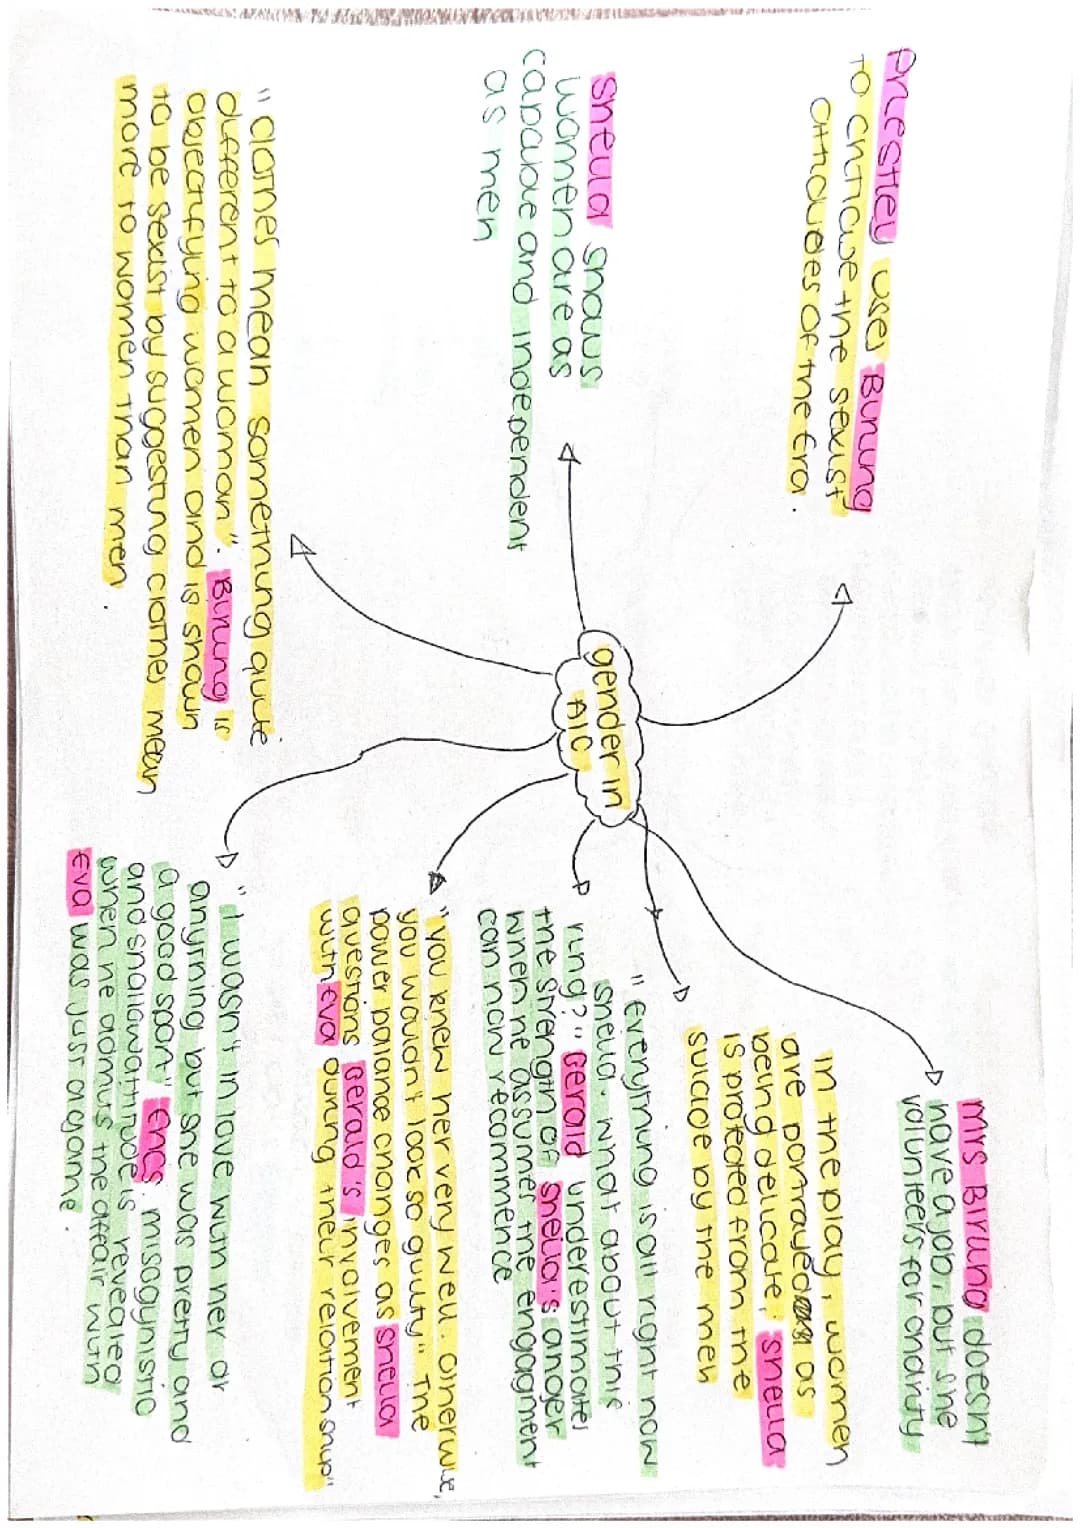 gender in
AIC
Priestley uses Birling
to criticise the sexist
attitudes of the era.
Sheila shows
women are as
capable and independent
as men
"clothes mean something quite
different to a woman". Birling is
objectifying women and is shown
to be sexist by suggesting clothes mean
more to women than men.
Mrs Birling doesn't
have a job, but she
volunteers for charity
In the play, women
are portrayed as
being delicate, Sheila
is proteted from the
suicide by the men
"Everything is all right now
Sheila. What about this
ring?" Gerald underestimates
the strength of Sheila's anger
when he assumes the engagment
can now recommence
"you knew her very well. Otherwise,
you wouldn't look so guilty" The
power palance changes as Sheila
questions Gerald's involvement
with Eva during their relationship"
"I wasn't in love with her or
anything but she was pretty and
a good sport" Erics misogynistic
and shallow attitude is revealed
when he admits the affair with
Eva was just a game.